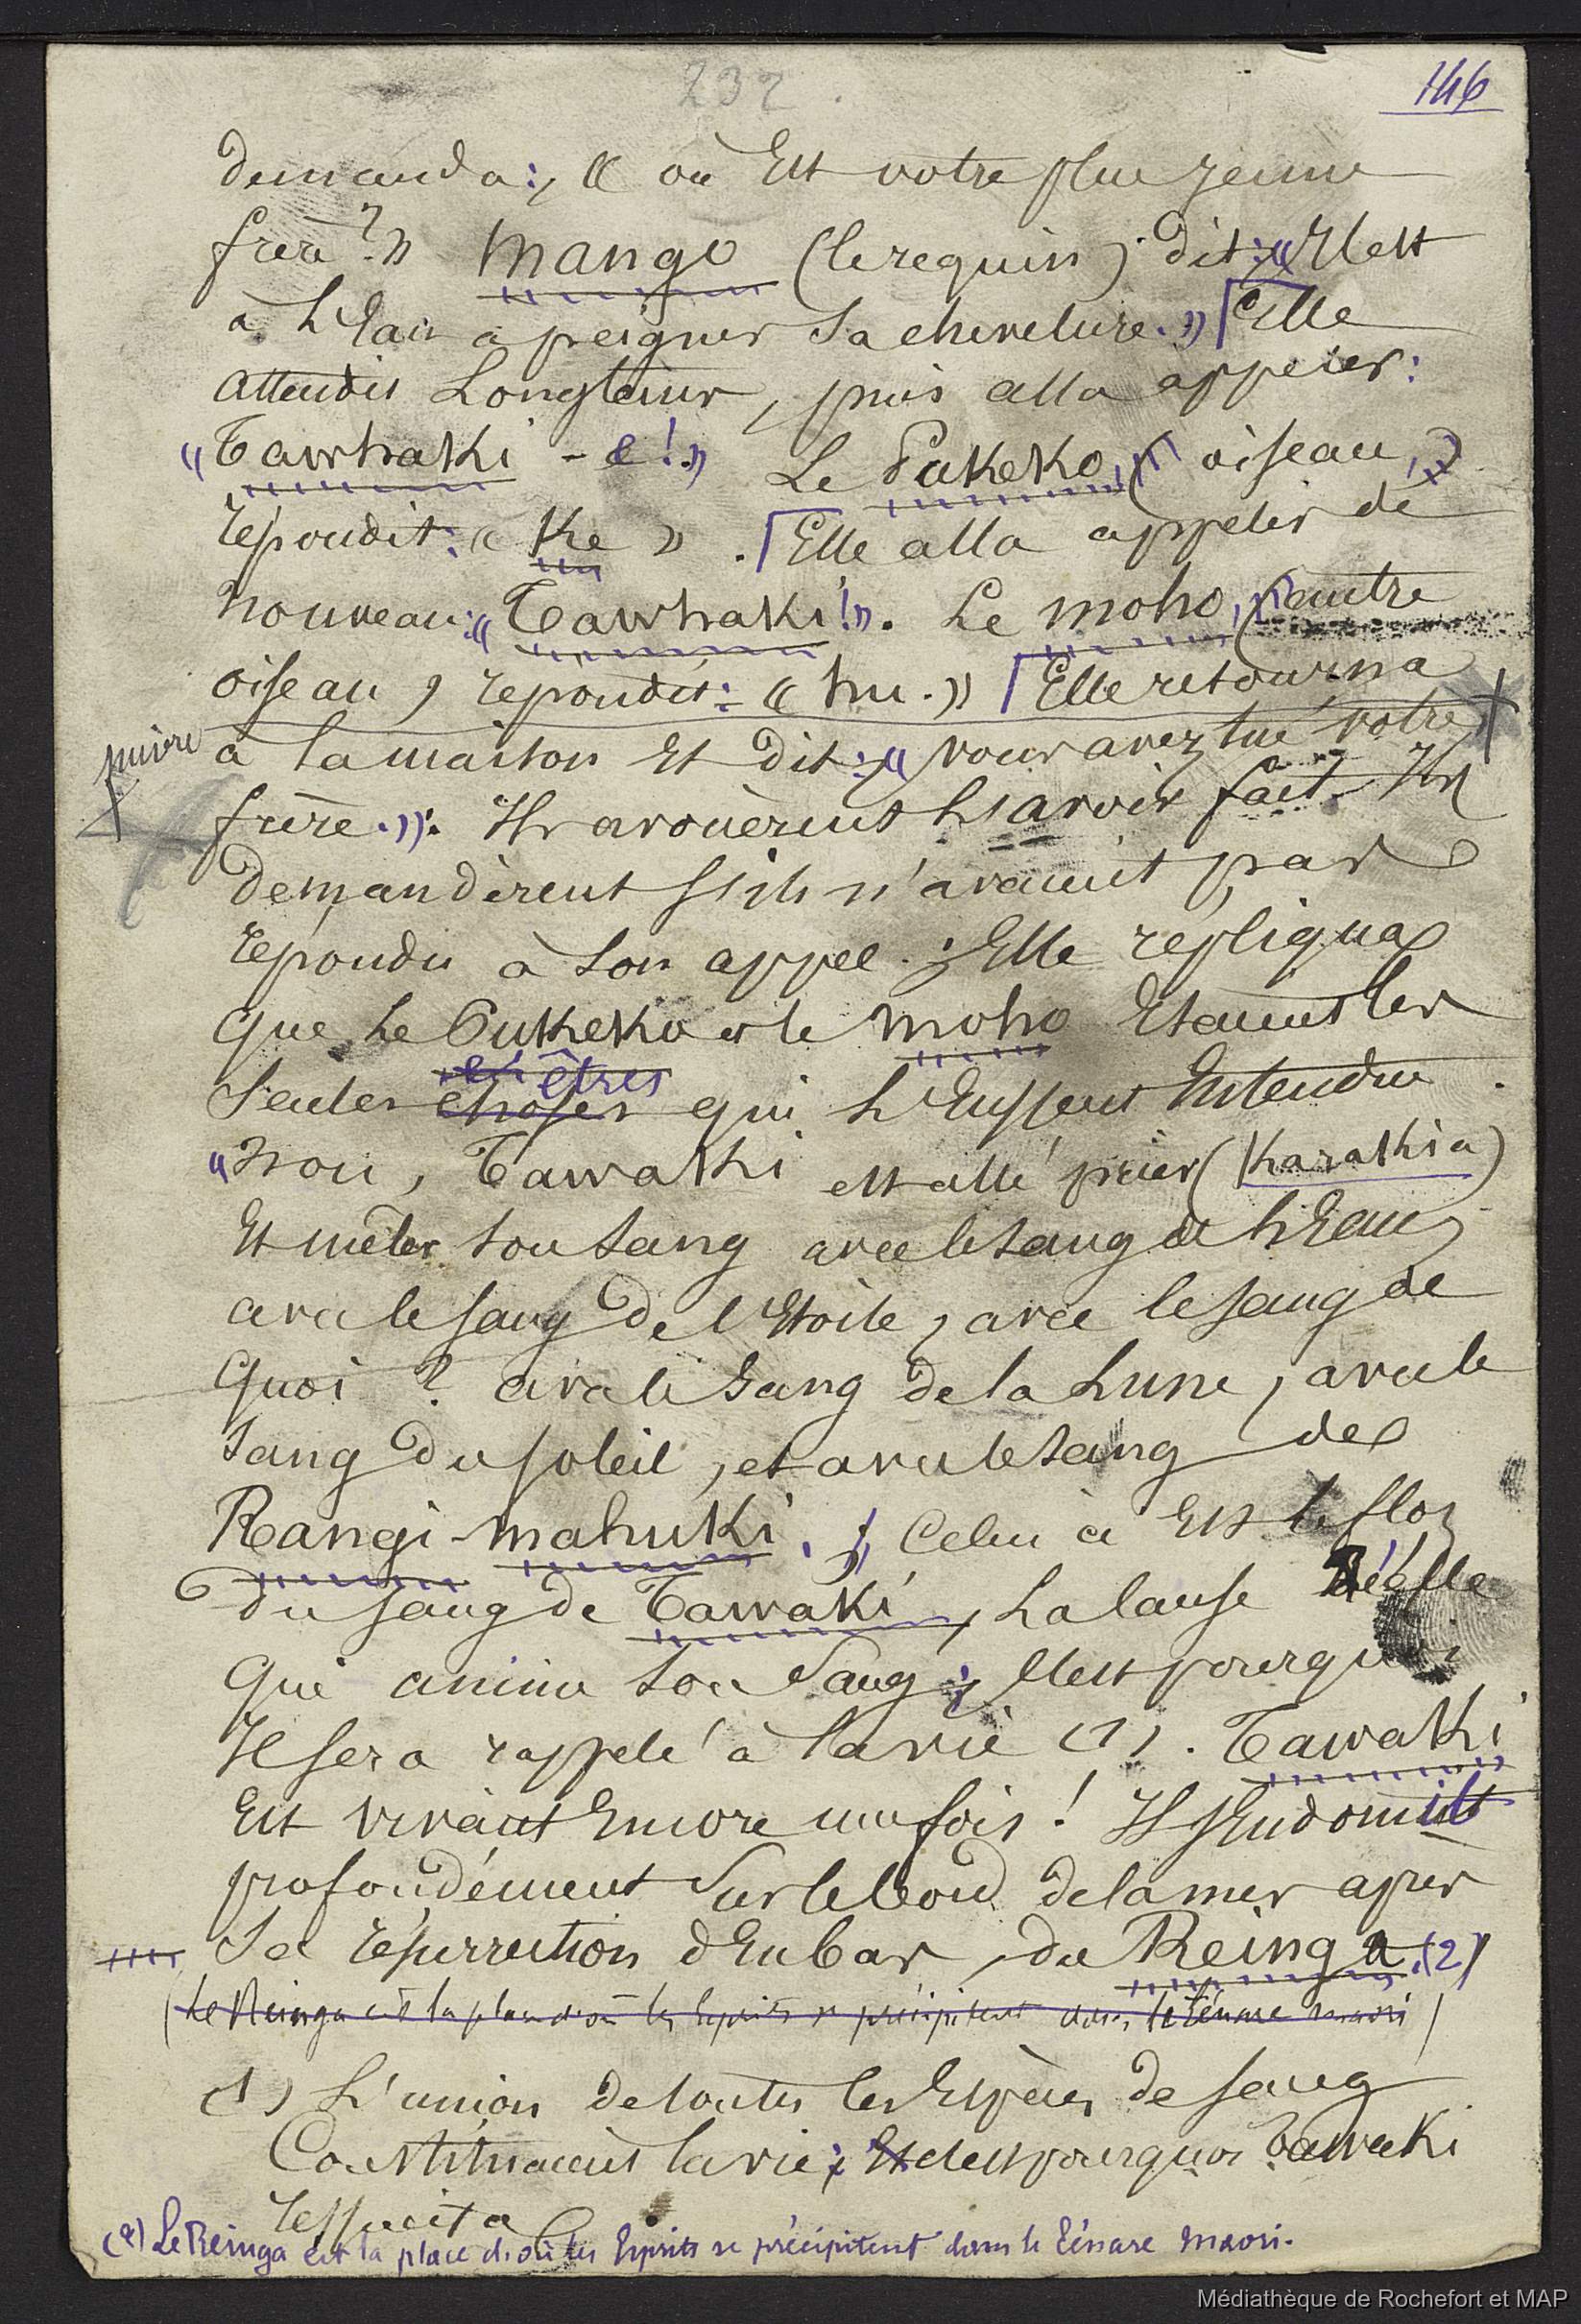 232
146
demanda : « où Est votre plus jeune
frère ? » Mango (le requin) dit : « Il est
à l'Eau à peigner sa chevelure. » Elle
attendit longtemps, puis alla appeler :
« Tawhaki - e ! » Le Pukeko (oiseau)
répondit : « Ke » . Elle alla appeler de
nouveau : « Tawhaki ! ». Le moho (autre
oiseau) répondit : « hu. » Elle retourna
à la maison Et dit : « vous avez tué votre
frère. » Ils avouèrent l'avoir fait. Ils
demandèrent s'ils n'avaient pas
répondu à son appel. Elle répliqua
que le Pukeko et le moho Etaient les
seules choses êtres qui l'Eussent Entendue.
« Non, Tawaki est allé prier (Karakia)
Et mêler son sang avec le sang de l'Eau,
avec le sang de l'Etoile, avec le sang de
quoi ? avec le sang de la Lune, avec le
sang du soleil, et avec le sang de
Rangi-mahuki. » Celui-ci Est le flot
du sang de Tawaki, la cause réelle
qui anime son sang ; c'est pourquoi
Il sera rappelé à la vie (1). Tawaki
Est vivant Encore une fois ! Il s'Endormit
profondément sur le bord de la mer après
sa résurrection d'En bas, du Reinga. (2)
(Le Reinga est la place d'où les Esprits se précipitent dans le Ténare maori)
(1) L'union de toutes les Espèces de sang
Constituaient la vie ; Et c'est pourquoi Tawaki
ressuscita
(2) Le Reinga est la place d'où les Esprits se précipitent dans le Ténare Maori.
Médiathèque de Rochefort et MAP